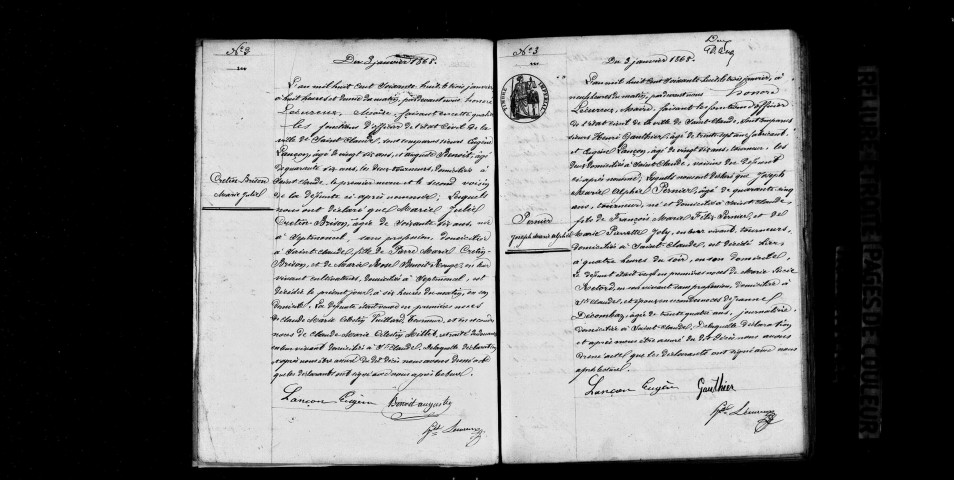 N° 2
Du 3 janvier 1868.
L'an mil huit cent soixante huit, le trois janvier
à huit heures et demie du matin, pardevant nous honoré
Lecureux, Maire, faisant en cette qualité
les fonctions d'officier de l'état civil de la
ville de Saint-Claude, sont comparus sieurs Eugène
Lançon, âgé de vingt six ans, et Auguste Benoit, âgé
de quarante six ans, les deux tourneurs, domiciliés à
Saint-Claude, le premier neveu et le second voisin
de la défunte ci après nommée; lesquels
nous ont déclaré que Marie Julie
Cretin-Brison, âgée de soixante six ans, née
à Septmoncel, sans profession, domiciliée
à Saint-Claude, fille de Pierre Marie Cretin-
Brison, et de Marie Rose Benoit-Rouge, en leur
vivant cultivateurs, domiciliés à Septmoncel, est
décédée le présent jour, à six heures du matin, en son
domicile. La défunte était veuve en premières noces
de Claude Marie Célestin Vuillard, tourneur, et en secondes
noces de Claude Marie Célestin Millet, retraité des douanes
en leur vivant domiciliés à St Claude. De laquelle déclaration
et après nous être assuré du dit décès nous avons dressé acte
que les déclarants ont signé avec nous après lecture.
Cretin-Brison
Marie Julie
Lançon Eugène Benoit auguste
hré Lecureux
N° 3
Du 3 janvier 1868.
TIMBRE IMPERIAL
L'an mil huit cent soixante huit, le trois janvier, à
neuf heures du matin, pardevant nous honoré
Lecureux, Maire, faisant les fonctions d'officier
de l'état civil de la ville de Saint-Claude, sont comparus
sieurs Henri Gauthier, âgé de trente sept ans, fabricant,
et Eugène Lançon, âgé de vingt six ans, tourneur, les
deux domiciliés à Saint-Claude, voisins du défunt
ci après nommé; lesquels nous ont déclaré que Joseph
Marie Alphée Pernier, âgé de quarante cinq
ans, tourneur, né et domicilié à Saint-Claude,
fils de François Marie Félix Pernier, et de
Marie Pierrette Joly, en leur vivant, tourneurs,
domiciliés à Saint-Claude, est décédé hier
à quatre heures du soir, en son domicile,
le défunt était veuf en premières noces de Marie
en son vivant sans profession, domiciliée à
St Claude, et époux en secondes noces de
âgée de trente quatre ans, journalière
domiciliée à Saint-Claude, de laquelle déclaration
et après nous être assuré du dit décès nous avons
dressé acte que les déclarants ont signé avec nous
après lecture.
Pernier
Joseph Marie Alphée
Lançon Eugène Gauthier
hré Lecureux
RELIURE TROP SERRÉE
PAGES DE COULEUR